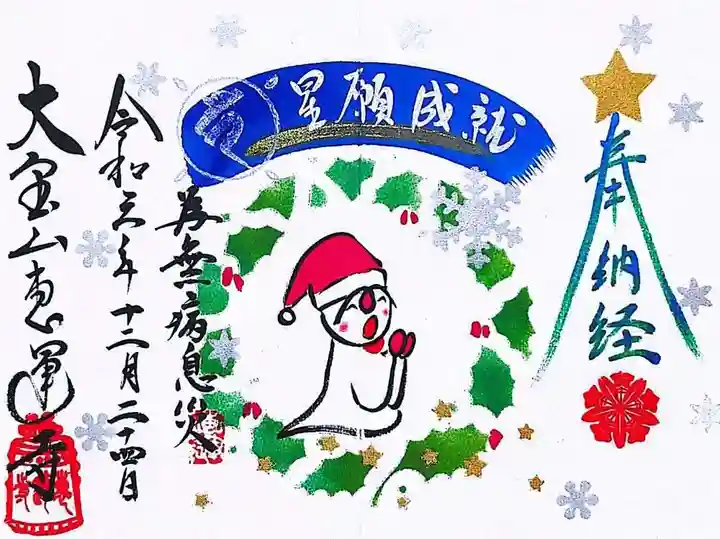 奉納経
星願成就
為無病息災
令和三年十二月二十四日
大宝山恵運寺